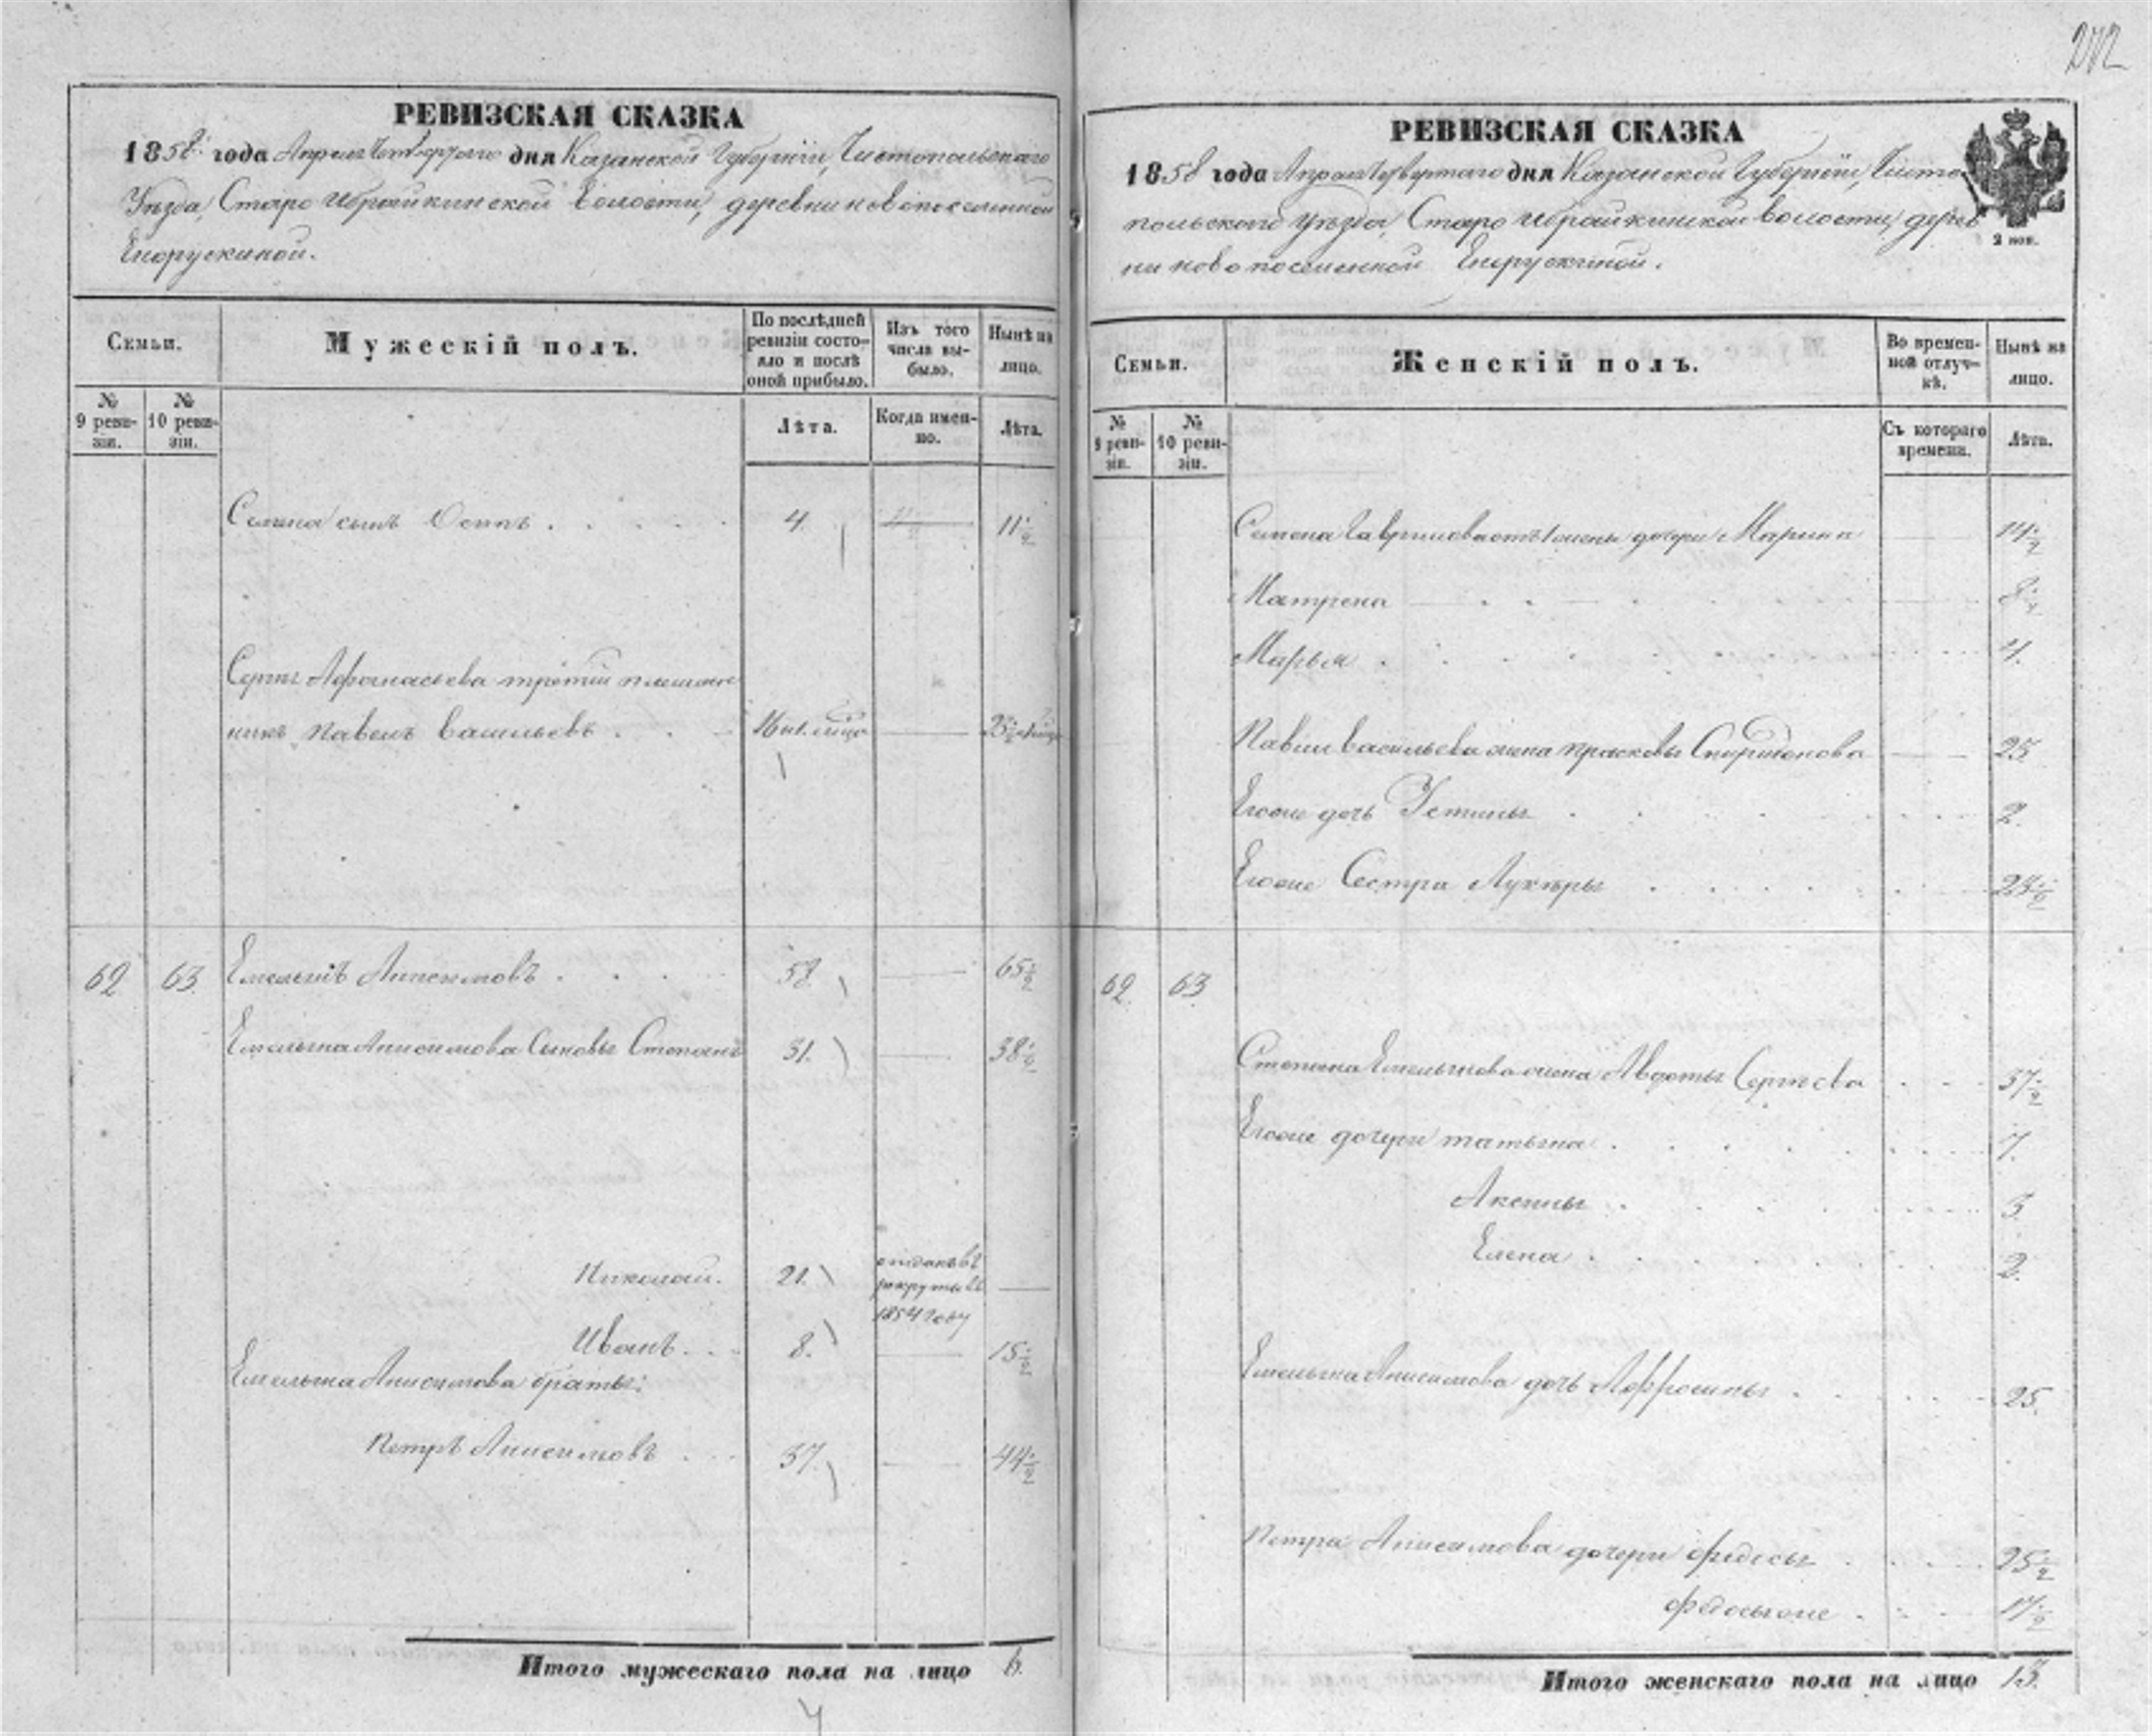 212
РЕВИЗСКАЯ СКАЗКА
1858 года Апреля Четвертаго дня Казанской Губерніи, Чистопольскаго
Уѣзда, Старо Ибрайкинской Волости, деревни новопоселенной
Енорускиной.
Семьи.
Мужескій полъ.
По послѣдней
ревизіи состо-
яло и послѣ
оной прибыло.
Изъ того
числа вы-
было.
Нынѣ на
лицо.
№
9 реви-
зіи.
№
10 реви-
зіи.
Лѣта.
Когда имен-
но.
Лѣта.
Семена сынъ Осипъ . . . . . 4. 11 1/2
Сергѣя Афонасьева третій племян
никъ Павелъ Васильевъ . . 16 23 1/2
62 63. Емельянъ Анисимовъ . . . . 58. 65 1/2
Емельяна Анисимова Сыновья Степанъ 31. 38 1/2
Николай. 21. отданъ въ
рекруты въ
1854 году
Иванъ. . . 8. 15 1/2
Емельяна Анисимова братья:
Петръ Анисимовъ . . . 37. 44 1/2
Итого мужескаго пола на лицо 6.
РЕВИЗСКАЯ СКАЗКА
1858 года Апреля Четвертаго дня Казанской Губерніи, Чисто
польскаго Уѣзда, Старо Ибрайкинской волости, дерев
ни новопоселенной Енорускиной.
2 коп.
Семьи.
Женскій полъ.
Во времен-
ной отлуч-
кѣ.
Нынѣ на
лицо.
№
9 реви-
зіи.
№
10 реви-
зіи.
Съ котораго
времени.
Лѣта.
Семена Гаврилова дочери Марина 14 1/2
Матрена 8 1/2
Марья 4.
Павла Васильева жена Прасковья Спиридонова 25
Егоже дочь Устинья 2.
Егоже Сестра Лукерья 24 1/2
62. 63
Степана Емельянова жена Авдотья Сергѣева 37 1/2
Егоже дочери Татьяна 7.
Аксинья 3
Елена 2.
Емельяна Анисимова дочь Афросинья 25.
Петра Анисимова дочери Федосья 25 1/2
Федосья же 17 1/2
Итого женскаго пола на лицо 13.